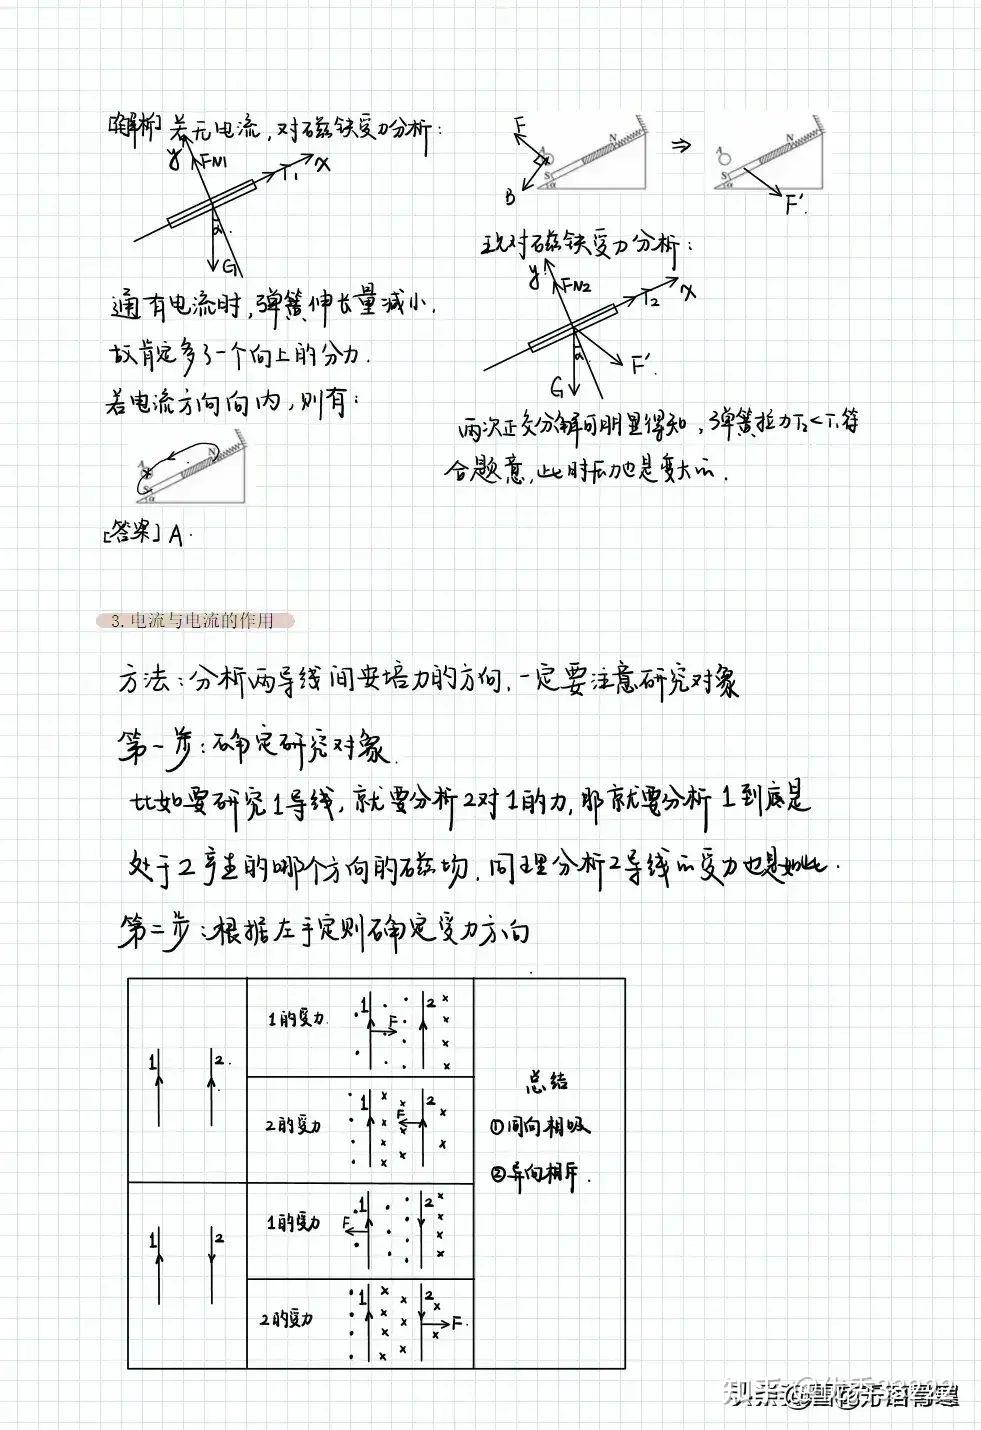 [解析] 若无电流,对磁铁受力分析:
y FN1 T1 x
α
G
通有电流时,弹簧伸长量减小.
故肯定多了一个向上的分力.
若电流方向向内,则有:
A N
S α
[答案] A.
F A N
B S α
⇒
A N
S α F'.
现对磁铁受力分析:
y FN2 T2 x
α
G F'.
两次正交分解可明显得知,弹簧拉力T2<T1符
合题意,此时压力也是变大的.
3. 电流与电流的作用
方法:分析两导线间安培力的方向,一定要注意研究对象
第一步:确定研究对象.
比如要研究1导线,就要分析2对1的力,那就要分析1到底是
处于2产生的哪个方向的磁场,同理分析2导线的受力也是如此.
第二步:根据左手定则确定受力方向
1 2.
1的受力. 1 F 2
2的受力 1 F 2
1 2
1的受力 F 1 2
2的受力 1 2 F.
总结
①同向相吸
②异向相斥.